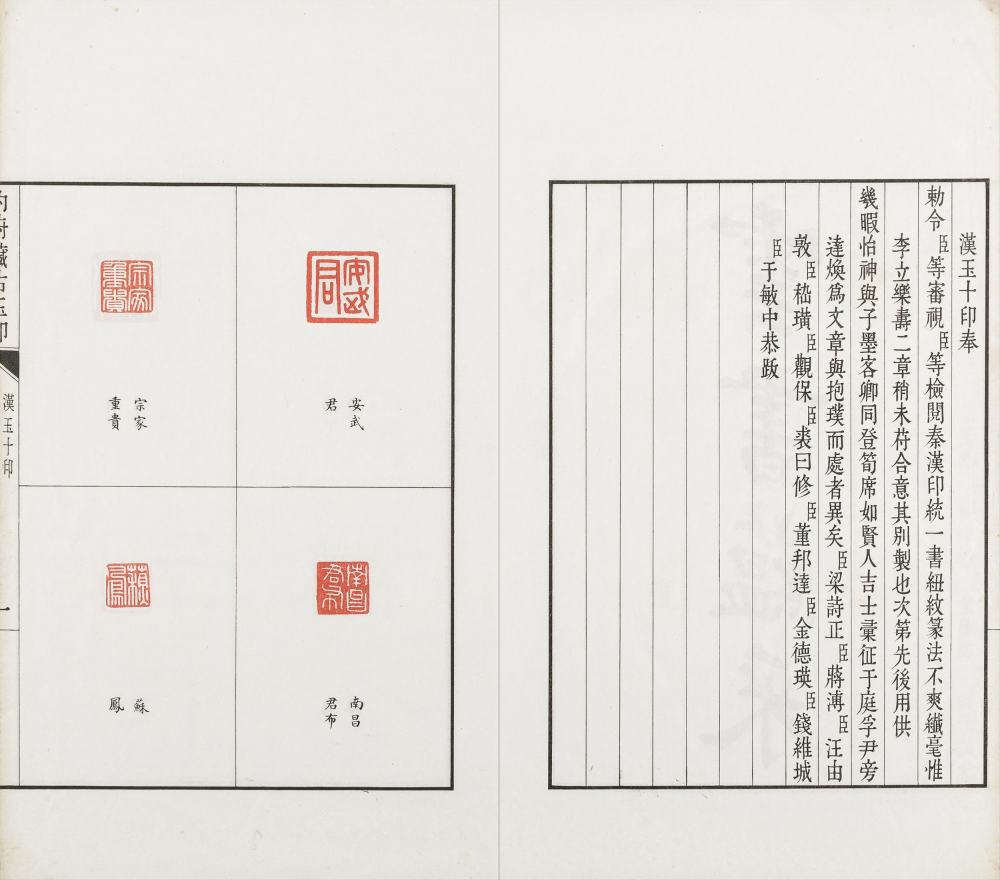 漢玉十印奉
勅令臣等審視臣等檢閱秦漢印統一書紐紋篆法不爽纖毫惟
李立樂壽二章稍未苻合意其別製也次第先後用供
幾暇怡神與子墨客卿同登筍席如賢人吉士彙征于庭孚尹旁
達煥爲文章與抱璞而處者異矣臣梁詩正臣蔣溥臣汪由
敦臣嵇璜臣觀保臣裘曰修臣董邦達臣金德瑛臣錢維城
臣于敏中恭跋
安武
君
安武
君
宗家
重貴
宗家
重貴
南昌
君布
南昌
君布
蘇
鳳
蘇
鳳
藏古玉印
漢玉十印
一